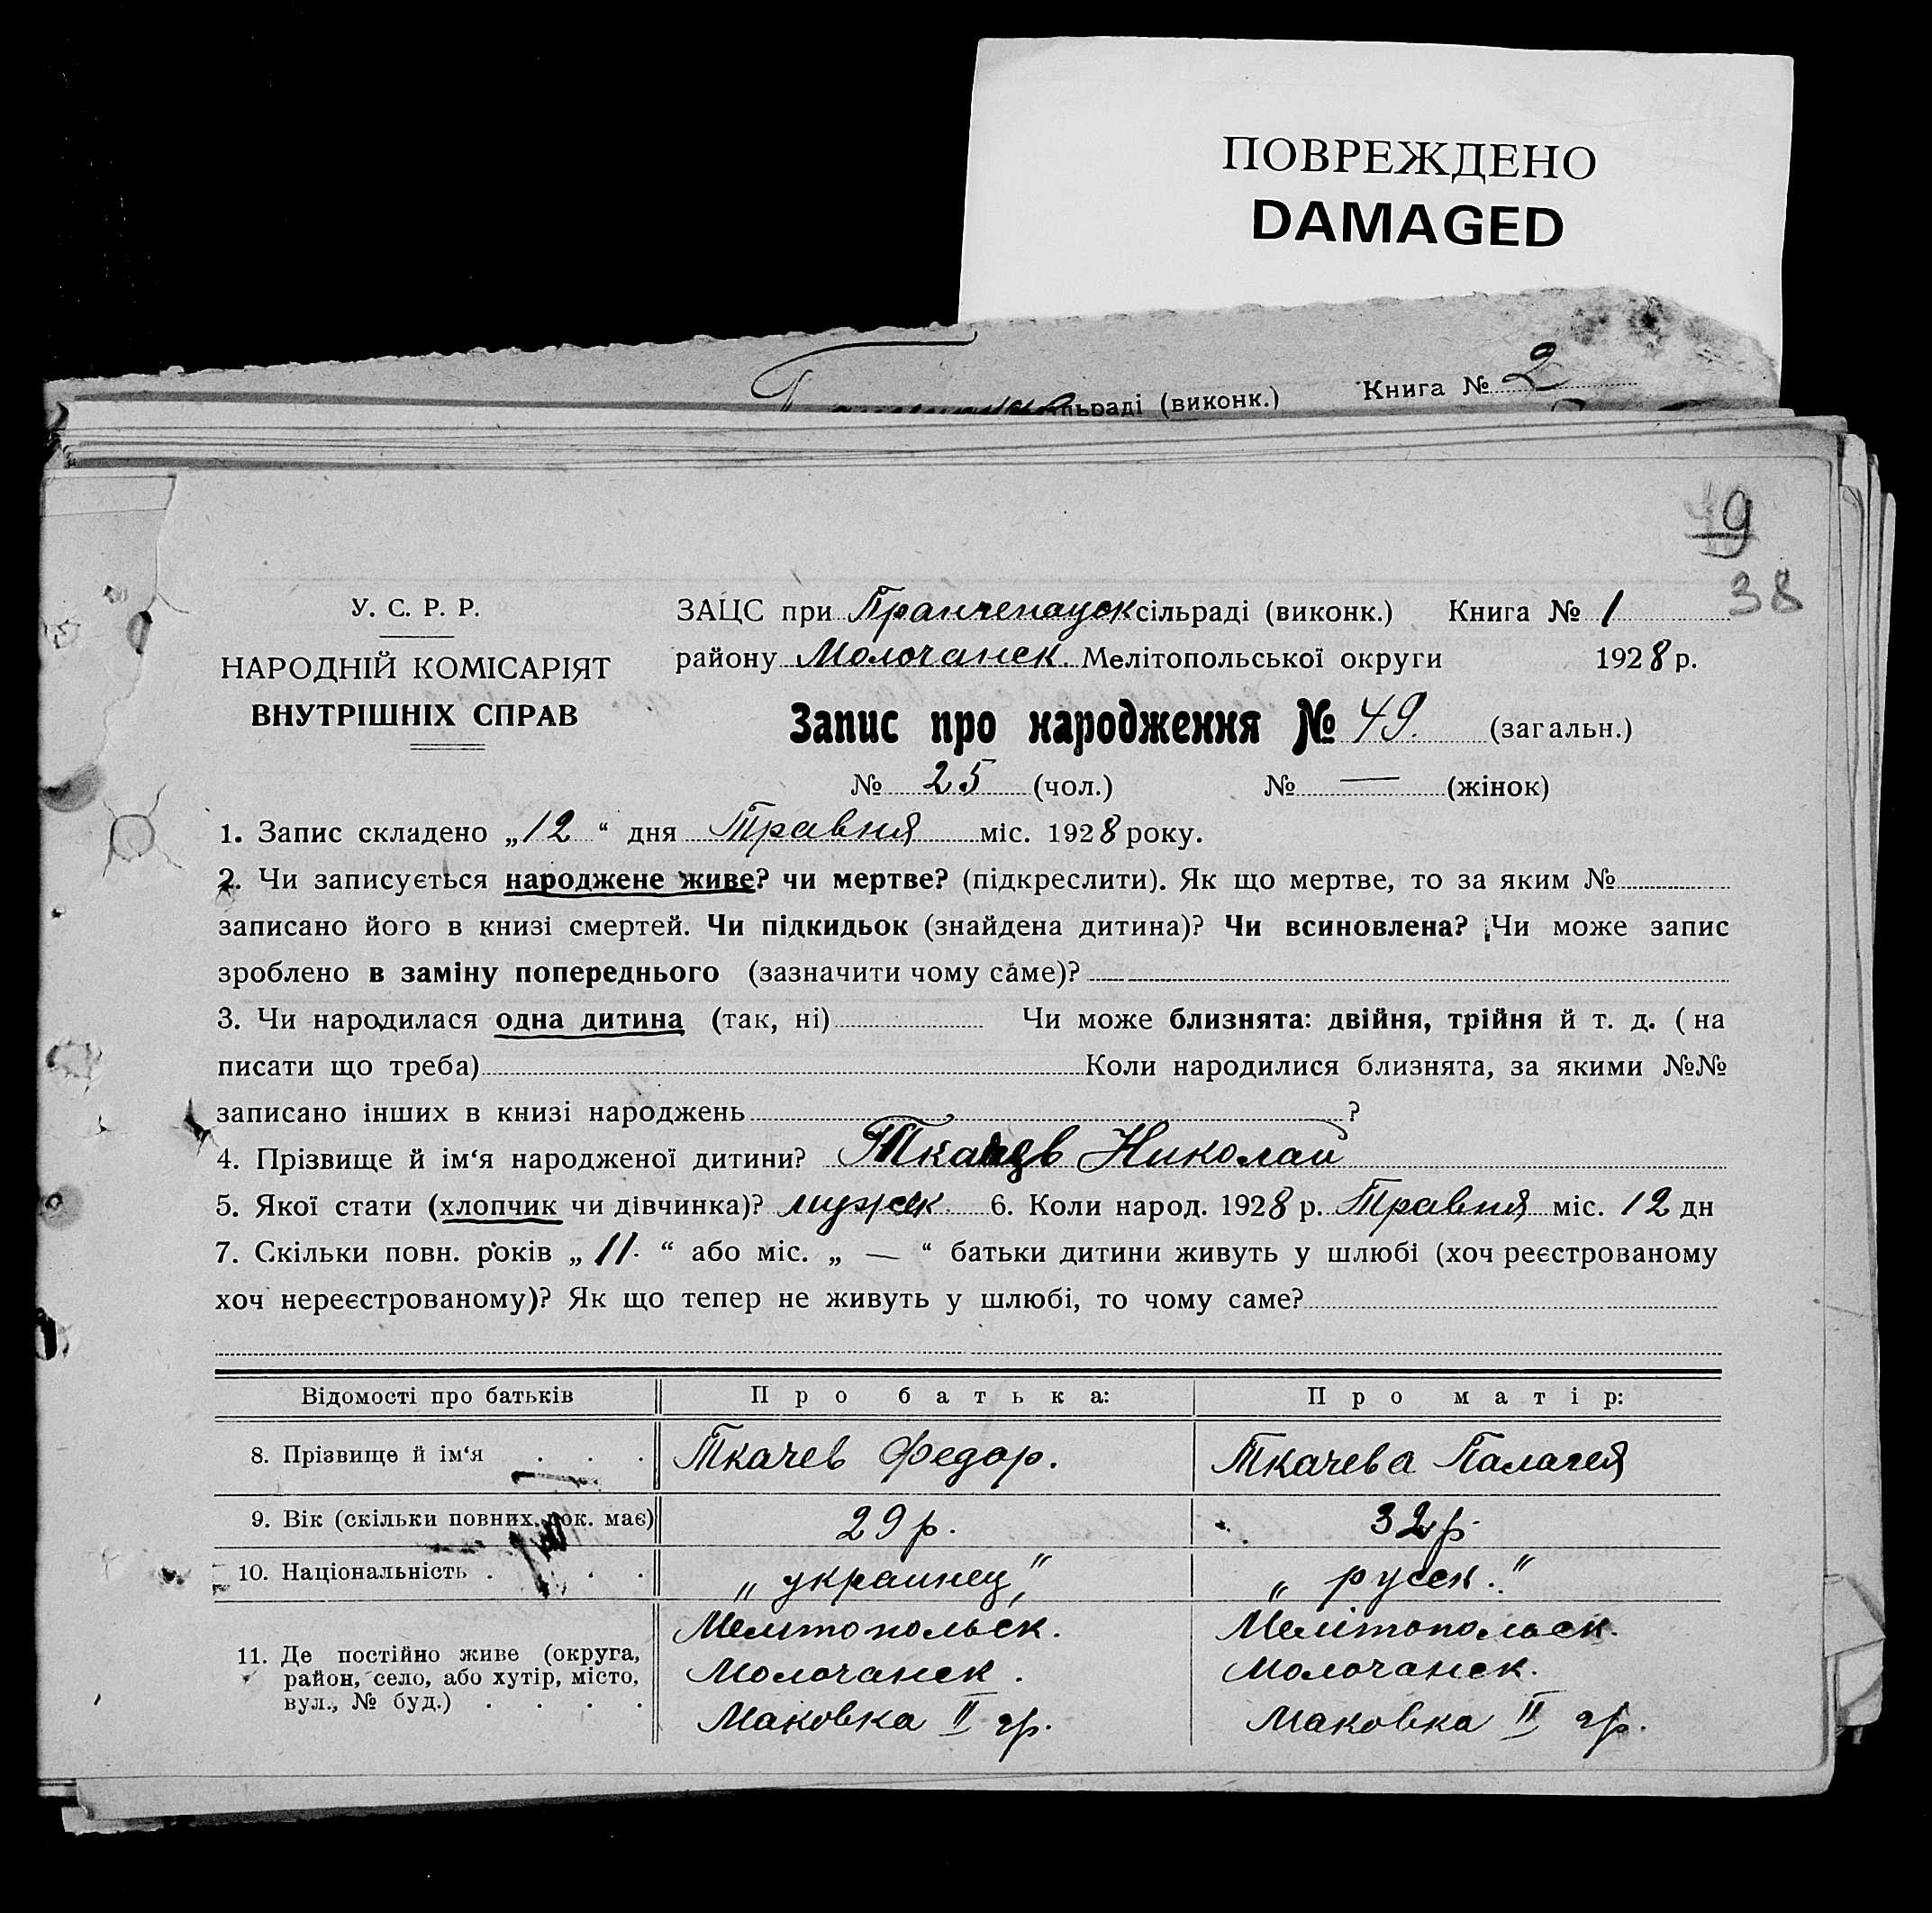 ПОВРЕЖДЕНО
DAMAGED
льраді (виконк.) Книга № 2
49
38
У. С. Р. Р.
НАРОДНІЙ КОМІСАРІЯТ
ВНУТРІШНІХ СПРАВ
ЗАЦС при сільраді (виконк.) Книга № 1
району Молочанск. Мелітопольської округи 1928 р.
Запис про народження № 49. (загальн.)
№ 25 (чол.) № — (жінок)
1. Запис складено „12“ дня Травня міс. 1928 року.
2. Чи записується народжене живе? чи мертве? (підкреслити). Як що мертве, то за яким №
записано його в книзі смертей. Чи підкидьок (знайдена дитина)? Чи всиновлена? Чи може запис
зроблено в заміну попереднього (зазначити чому саме)?
3. Чи народилася одна дитина (так, ні) Чи може близнята: двійня, трійня й т. д. (на
писати що треба) Коли народилися близнята, за якими №№
записано інших в книзі народжень ?
4. Прізвище й ім‘я народженої дитини? Ткачев Николай
5. Якої стати (хлопчик чи дівчинка)? мужск. 6. Коли народ. 1928 р. Травня міс. 12 дн
7. Скільки повн. років „11.“ або міс. „ — “ батьки дитини живуть у шлюбі (хоч реєстрованому
хоч нереєстрованому)? Як що тепер не живуть у шлюбі, то чому саме?
Відомості про батьків Про батька: Про матір:
8. Прізвище й ім‘я . . . Ткачев Федор. Ткачева Палагея
9. Вік (скільки повних рок. має) 29 р. 32 р.
10. Національність . . . . „украинец“ „русск.“
11. Де постійно живе (округа,
район, село, або хутір, місто,
вул., № буд.) . . . .
Мелітопольск. Мелітопольск.
Молочанск. Молочанск.
Маковка II гр. Маковка II гр.